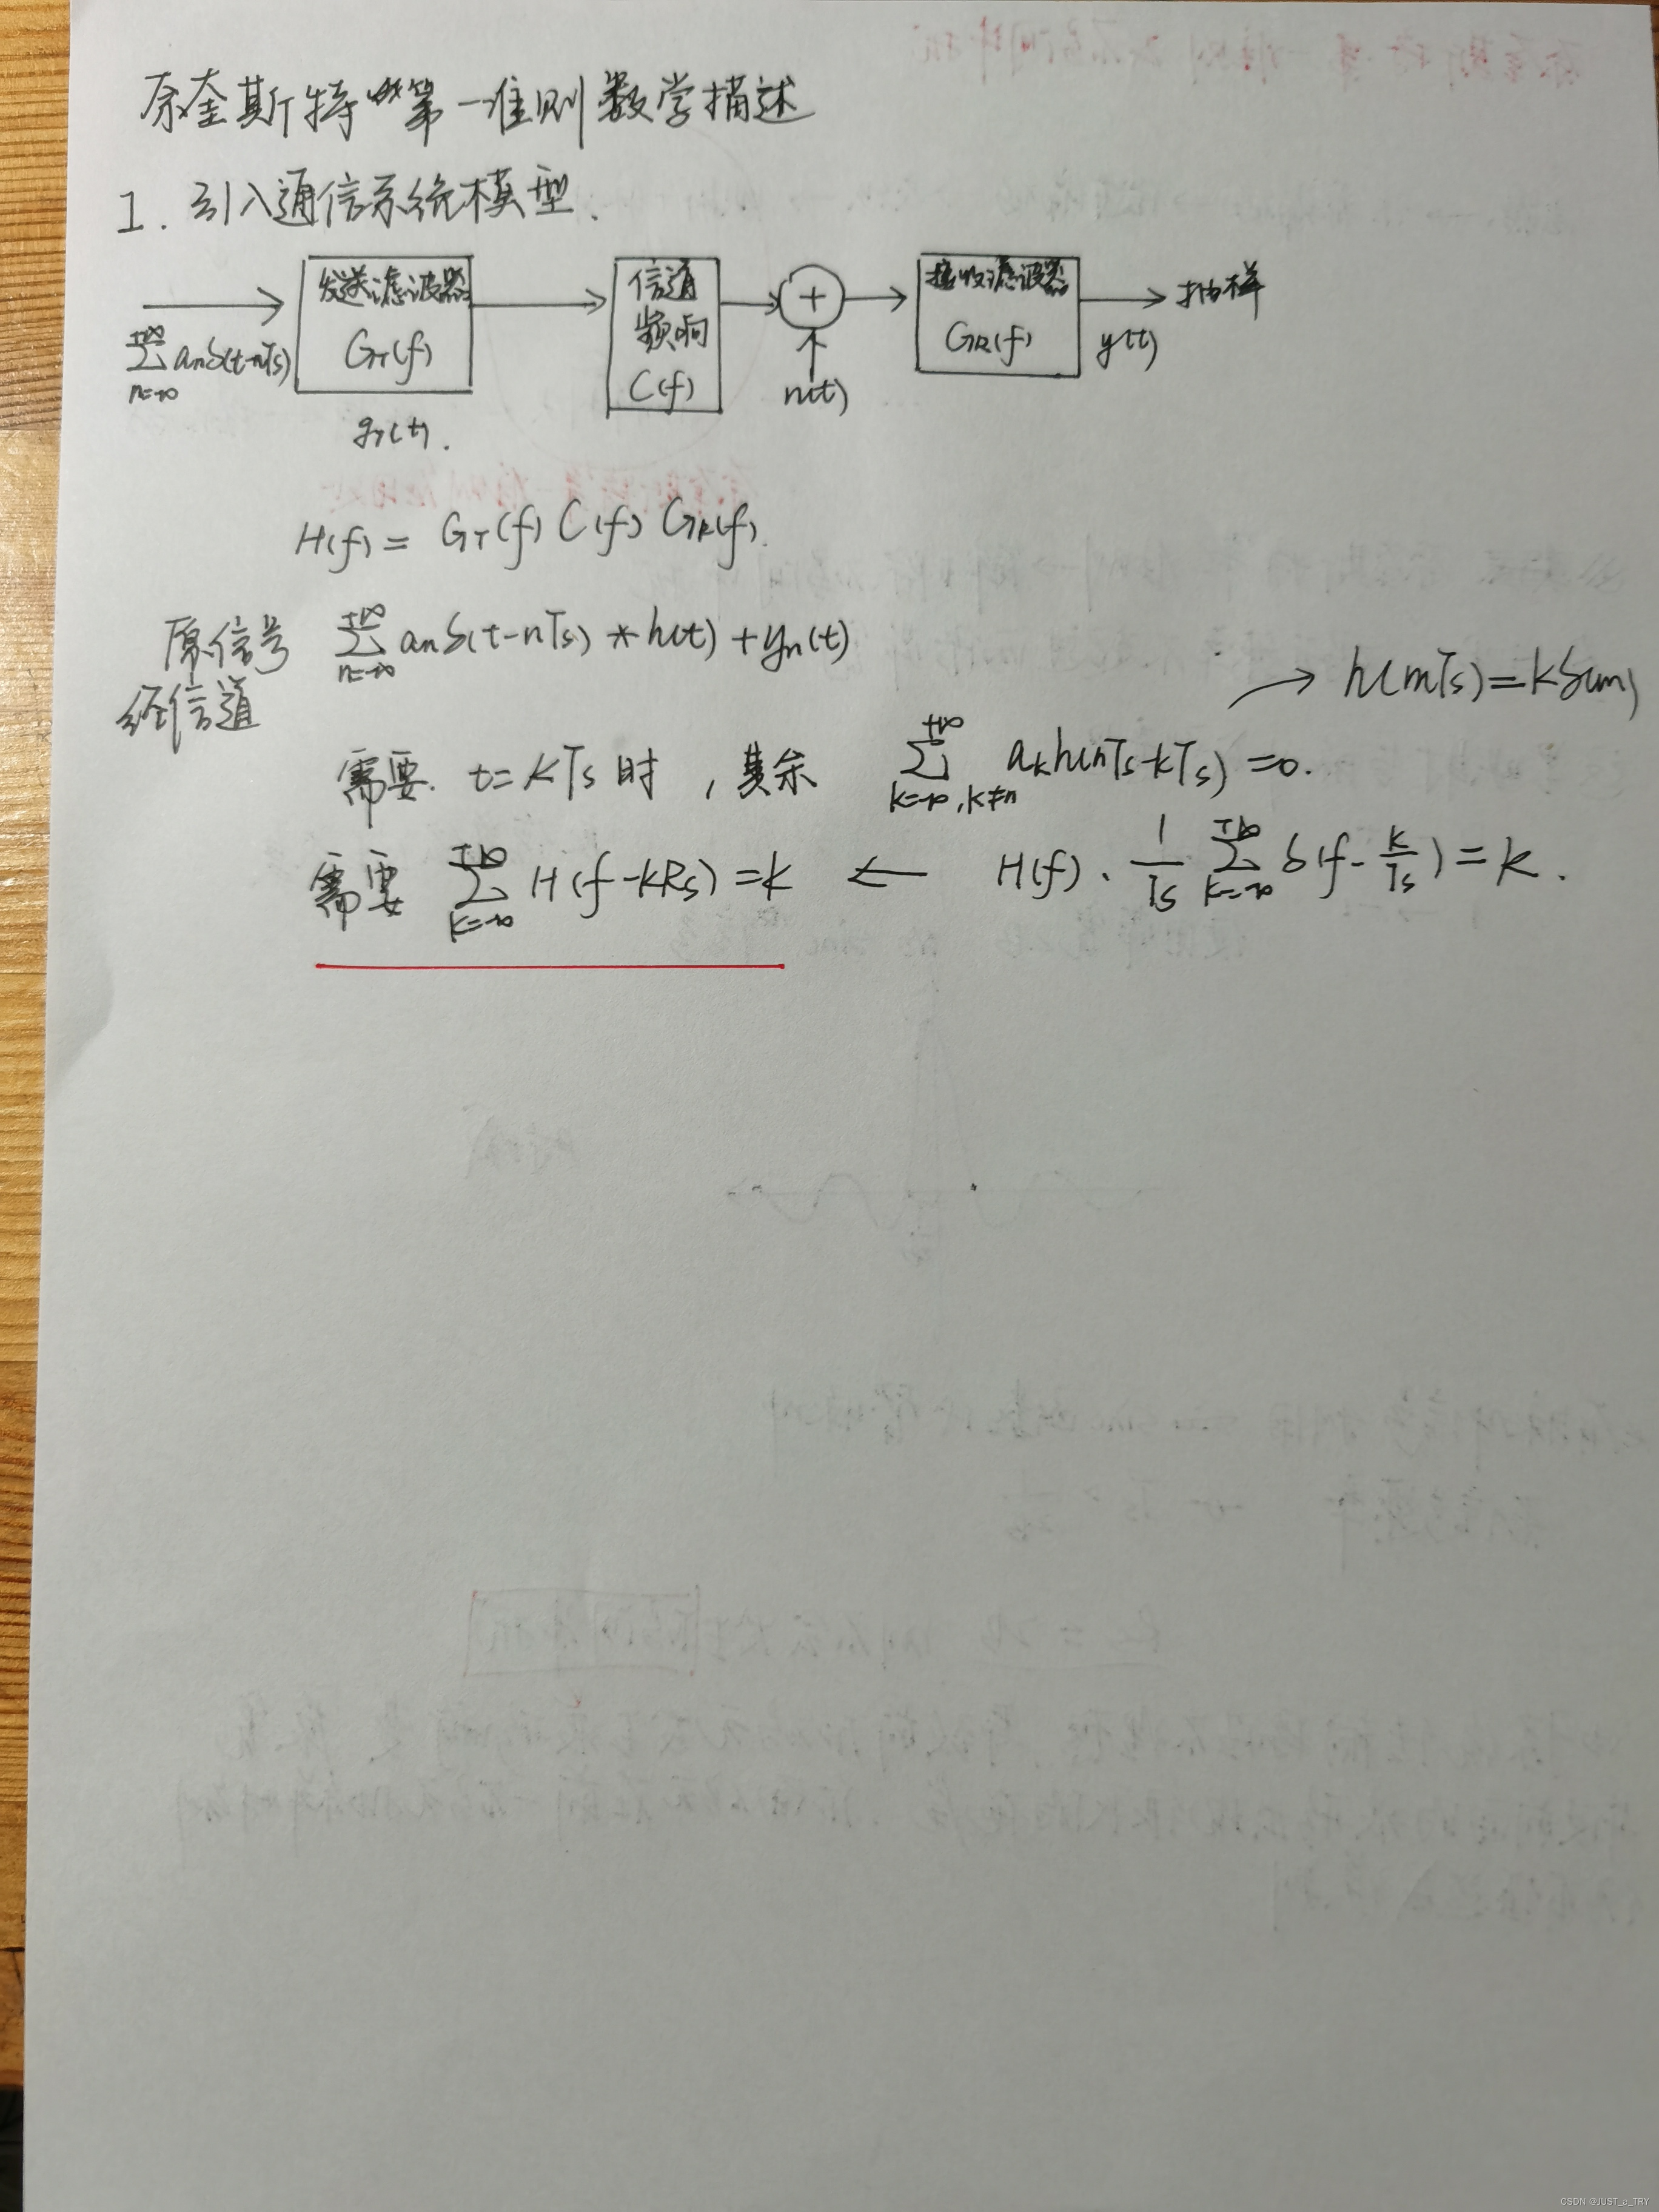 奈奎斯特第一准则数学描述
1. 引入通信系统模型.
发送滤波器 G_T(f)
信道频响 C(f)
+
接收滤波器 G_R(f)
抽样
∑_{n=-∞}^{+∞} a_nδ(t-nTs)
n(t)
y(t)
g_T(t).
H(f) = G_T(f) C(f) G_R(f).
原信号经信道 ∑_{n=-∞}^{+∞} a_nδ(t-nTs) * h(t) + y_n(t)
→ h(mTs)=kδ(m)
需要. t=kTs时,其余 ∑_{k=-∞,k≠n}^{+∞} a_k h(nTs-kTs)=0.
需要 ∑_{k=-∞}^{+∞} H(f-kRs)=k ← H(f)·\frac{1}{Ts} ∑_{k=-∞}^{+∞} δ(f-\frac{k}{Ts})=k.
CSDN @JUST_a_TRY